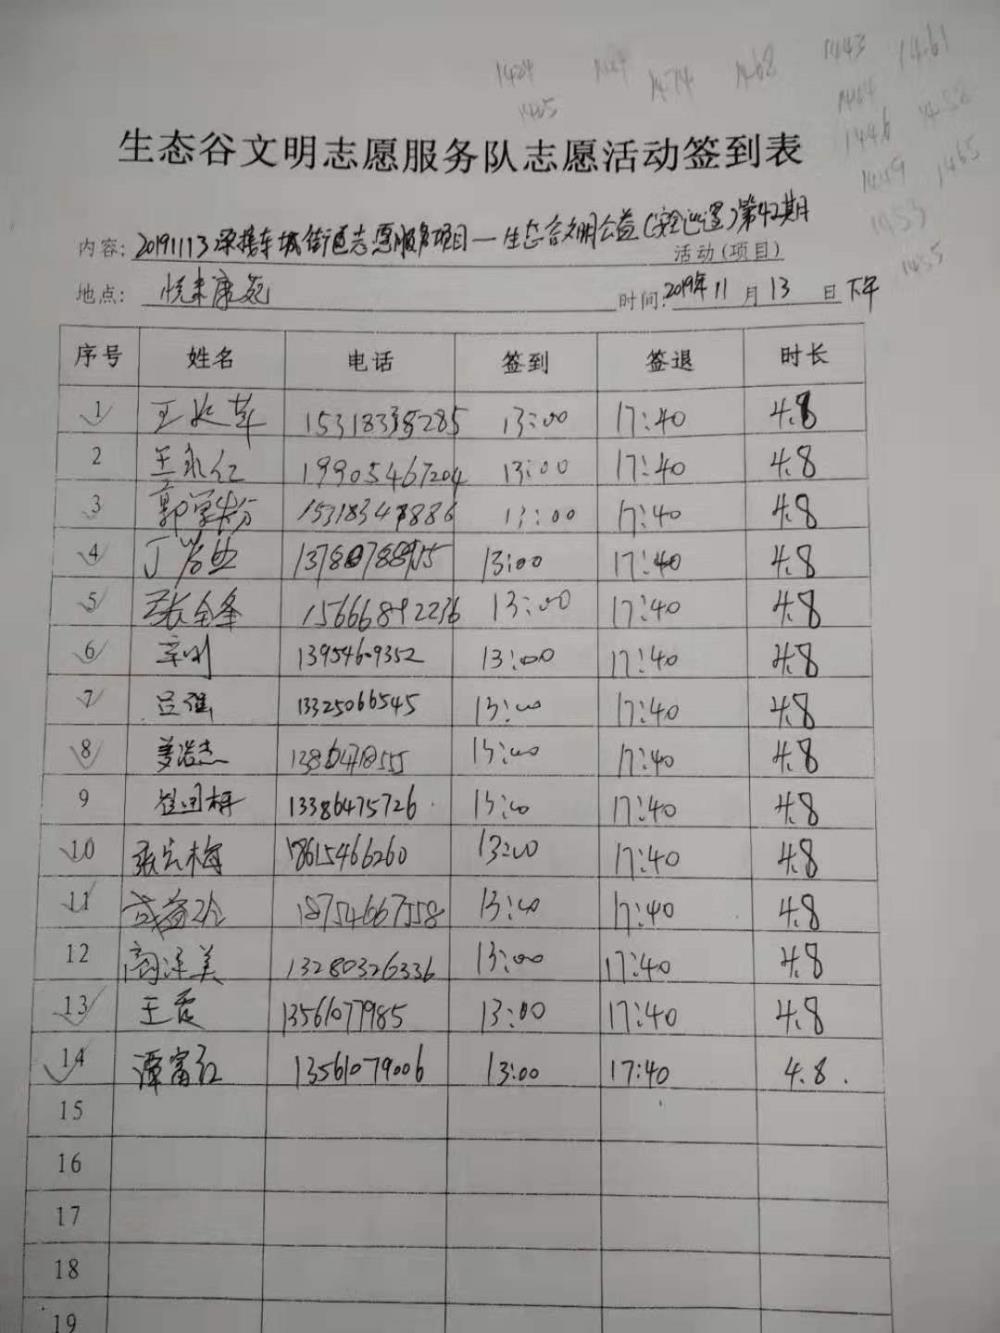 1443 1461
1474 1468
生态谷文明志愿服务队志愿活动签到表
1446
1465
1453
1455
内容: 20191113 车城街道志愿服务项目—生态谷文明公益(安全巡逻)第42期 活动(项目)
地点: 悦来康苑 时间: 2019年11月13日下午
序号 姓名 电话 签到 签退 时长
1 15318338285 13:00 17:40 4.8
2 王永仁 19905467204 13:00 17:40 4.8
3 郭学芬 15318347886 13:00 17:40 4.8
4 13:00 17:40 4.8
5 张全峰 15666892236 13:00 17:40 4.8
6 13954609352 13:00 17:40 4.8
7 吕强 13325066545 13:00 17:40 4.8
8 姜浩杰 13:00 17:40 4.8
9 13386475726 13:00 17:40 4.8
10 18615466260 13:00 17:40 4.8
11 18754667558 13:00 17:40 4.8
12 13280326336 13:00 17:40 4.8
13 13561077985 13:00 17:40 4.8
14 谭富红 13561079006 13:00 17:40 4.8.
15
16
17
18
19